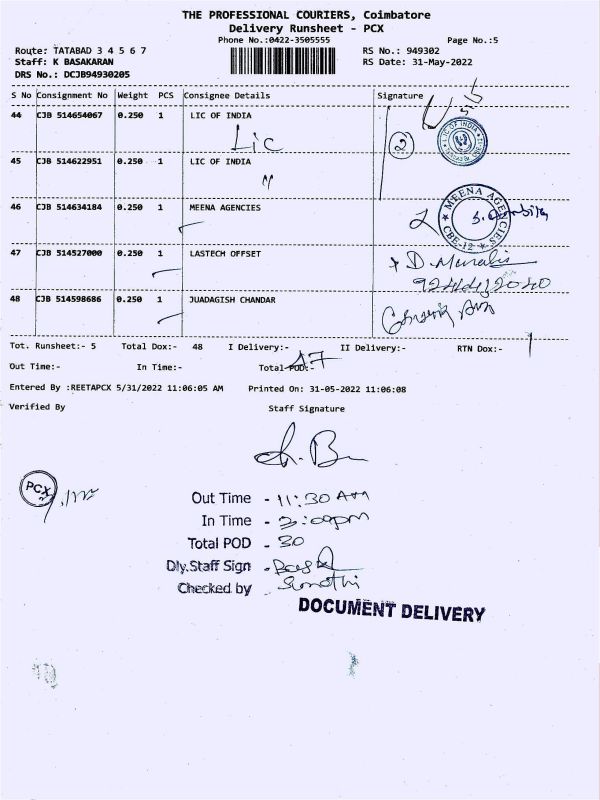 THE PROFESSIONAL COURIERS, Coimbatore
Delivery Runsheet - PCX
Phone No.:0422-3505555 Page No.:5
Route: TATABAD 3 4 5 6 7 RS No.: 949302
Staff: K BASAKARAN RS Date: 31-May-2022
DRS No.: DCJB94930205
S No Consignment No Weight PCS Consignee Details Signature
44 CJB 514654067 0.250 1 LIC OF INDIA
LiC
2
LIC OF INDIA
45 CJB 514622951 0.250 1 LIC OF INDIA
"
46 CJB 514634184 0.250 1 MEENA AGENCIES
MEENA AGENCIES
CBE-12
47 CJB 514527000 0.250 1 LASTECH OFFSET
D. Murali
48 CJB 514598686 0.250 1 JUADAGISH CHANDAR
Tot. Runsheet:- 5 Total Dox:- 48 I Delivery:- II Delivery:- RTN Dox:- 1
Out Time:- In Time:- Total POD:- 47
Entered By :REETAPCX 5/31/2022 11:06:05 AM Printed On: 31-05-2022 11:06:08
Verified By Staff Signature
PCX
Out Time - 11:30 AM
In Time - 2:00pm
Total POD - 30
Dly.Staff Sign -
Checked by - Sumathi
DOCUMENT DELIVERY